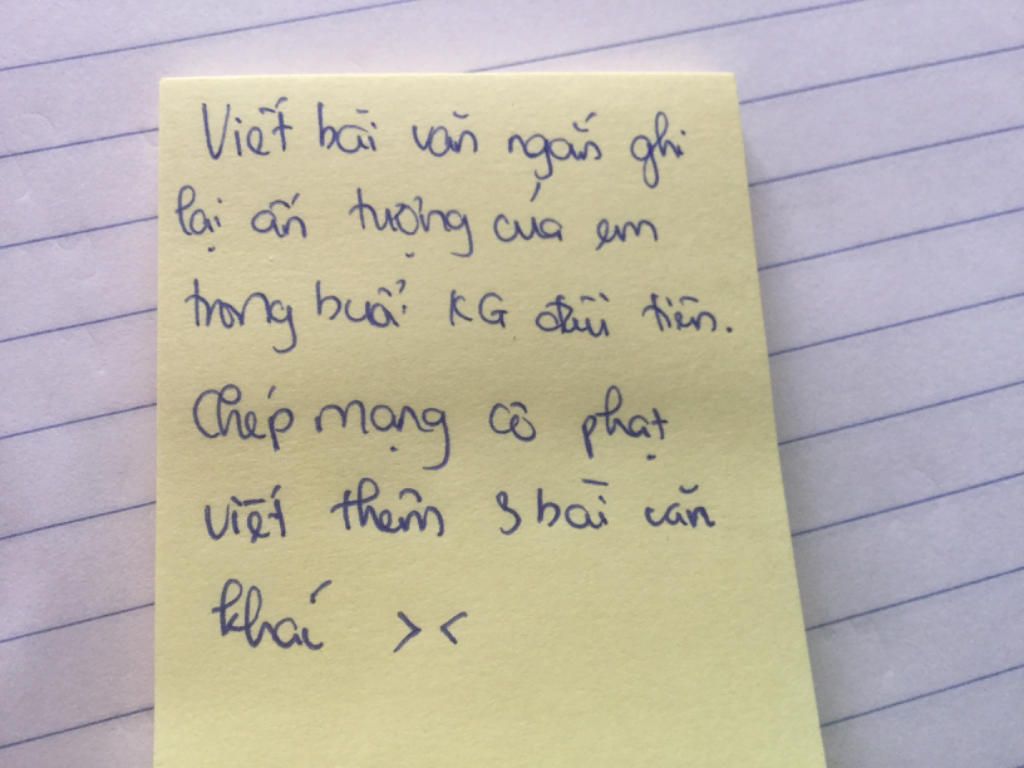 Viết bài văn ngắn ghi
lại ấn tượng của em
trong buổi KG đầu tiên.
Chép mạng cô phạt
viết thêm 3 bài văn
khác ><